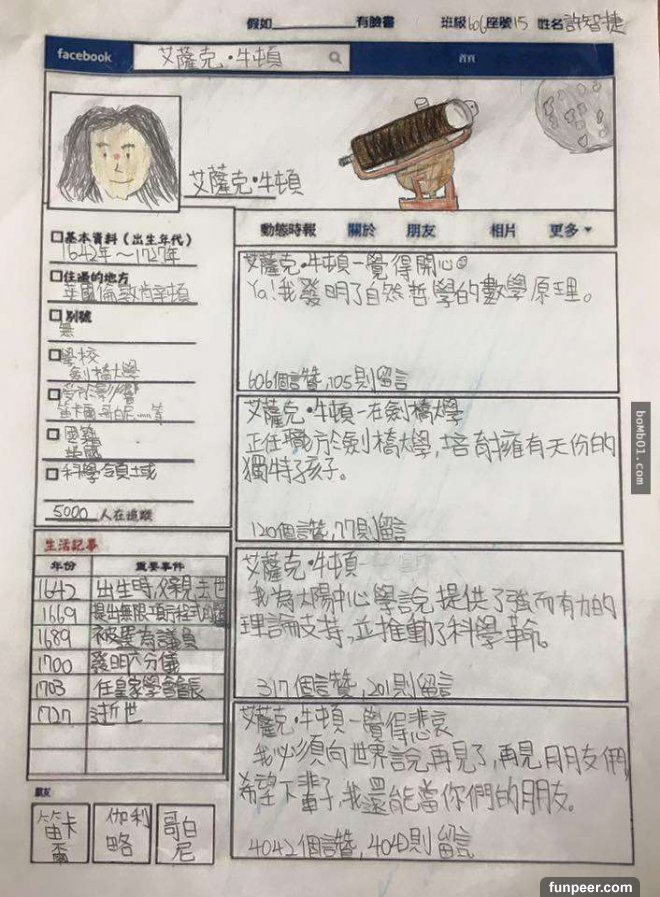 假如________有臉書 班級606座號15 姓名許智捷
facebook 艾薩克•牛頓 首頁
艾薩克•牛頓
動態時報 關於 朋友 相片 更多
基本資料(出生年代)
1642年~1727年
住過的地方
英國倫敦肯辛頓
別號
無
學校
劍橋大學
受於影響
笛卡爾、哥白尼……等
國籍
英國
科學領域
5000 人在追蹤
生活記事
年份 重要事件
1642 出生時,父親去世
1669 提出無限項方程式
1689 被選為議員
1700 發明六分儀
1703 任皇家學會會長
1727 逝世
朋友
笛卡爾
伽利略
哥白尼
艾薩克•牛頓-覺得開心
Ya!我發明了自然哲學的數學原理。
606個讚,105則留言
艾薩克•牛頓-在劍橋大學
正任職於劍橋大學,培育擁有天份的
獨特孩子。
120個讚,77則留言
艾薩克•牛頓-
我為太陽中心學說提供了強而有力的
理論支持,並推動了科學革命。
317個讚,201則留言
艾薩克•牛頓-覺得悲哀
我必須向世界說再見了,再見朋友們,
希望下輩子,我還能當你們的朋友。
4042個讚,404則留言
boMb01.com
funpeer.com